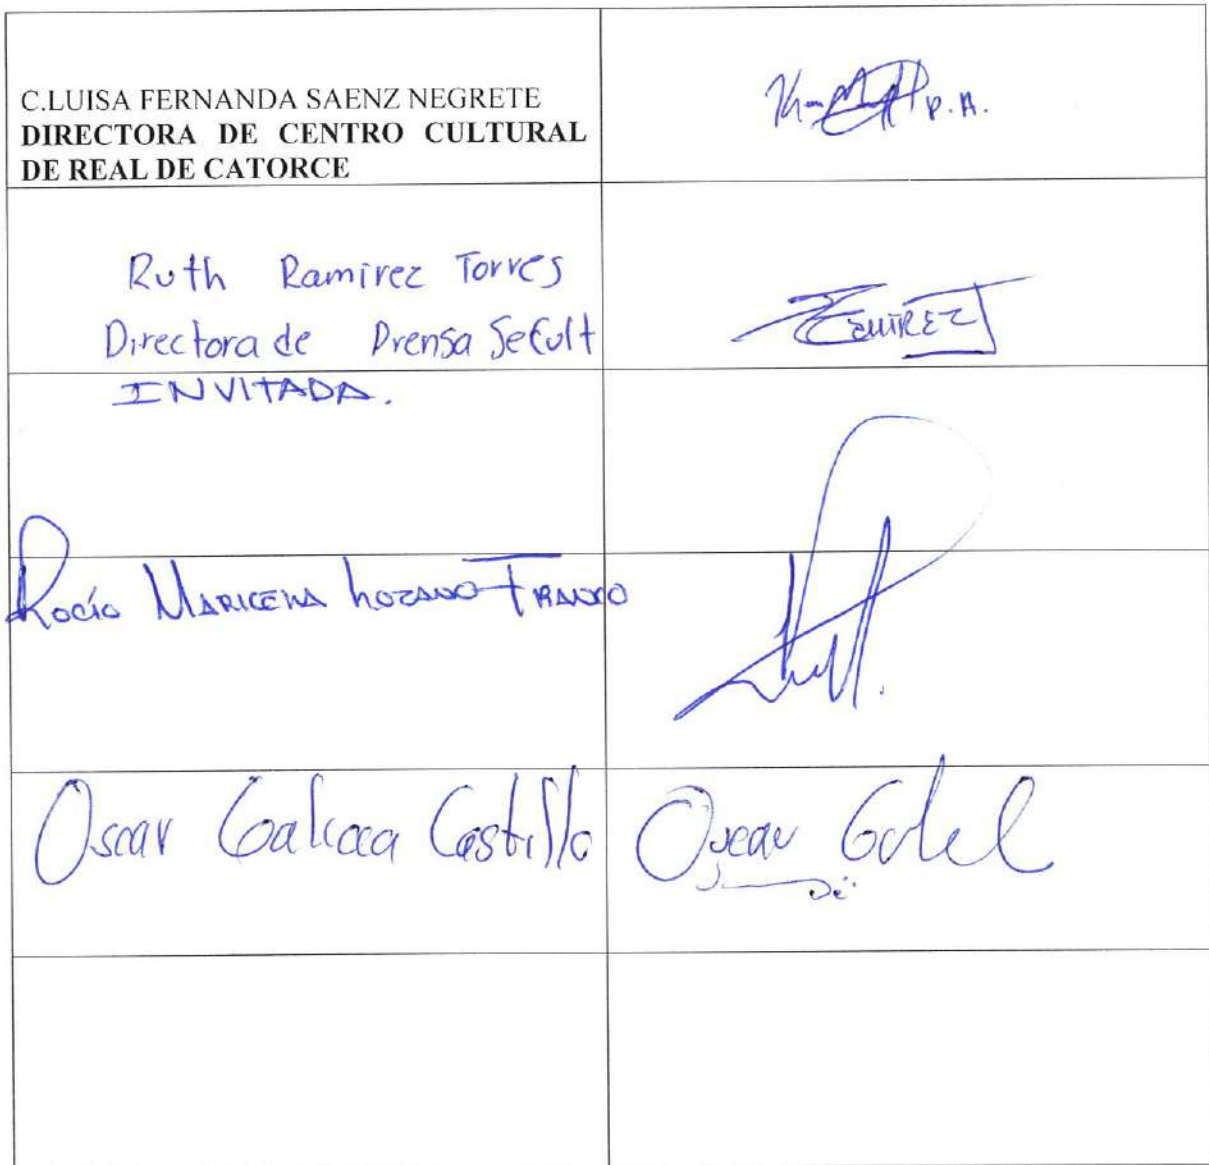 C.LUISA FERNANDA SAENZ NEGRETE
DIRECTORA DE CENTRO CULTURAL
DE REAL DE CATORCE
P.A.
Ruth Ramirez Torres
Directora de Prensa SeCult
INVITADA.
RAMIREZ
Rocío MARICELA LOZANO FRANCO
Oscar Castillo
Oscar